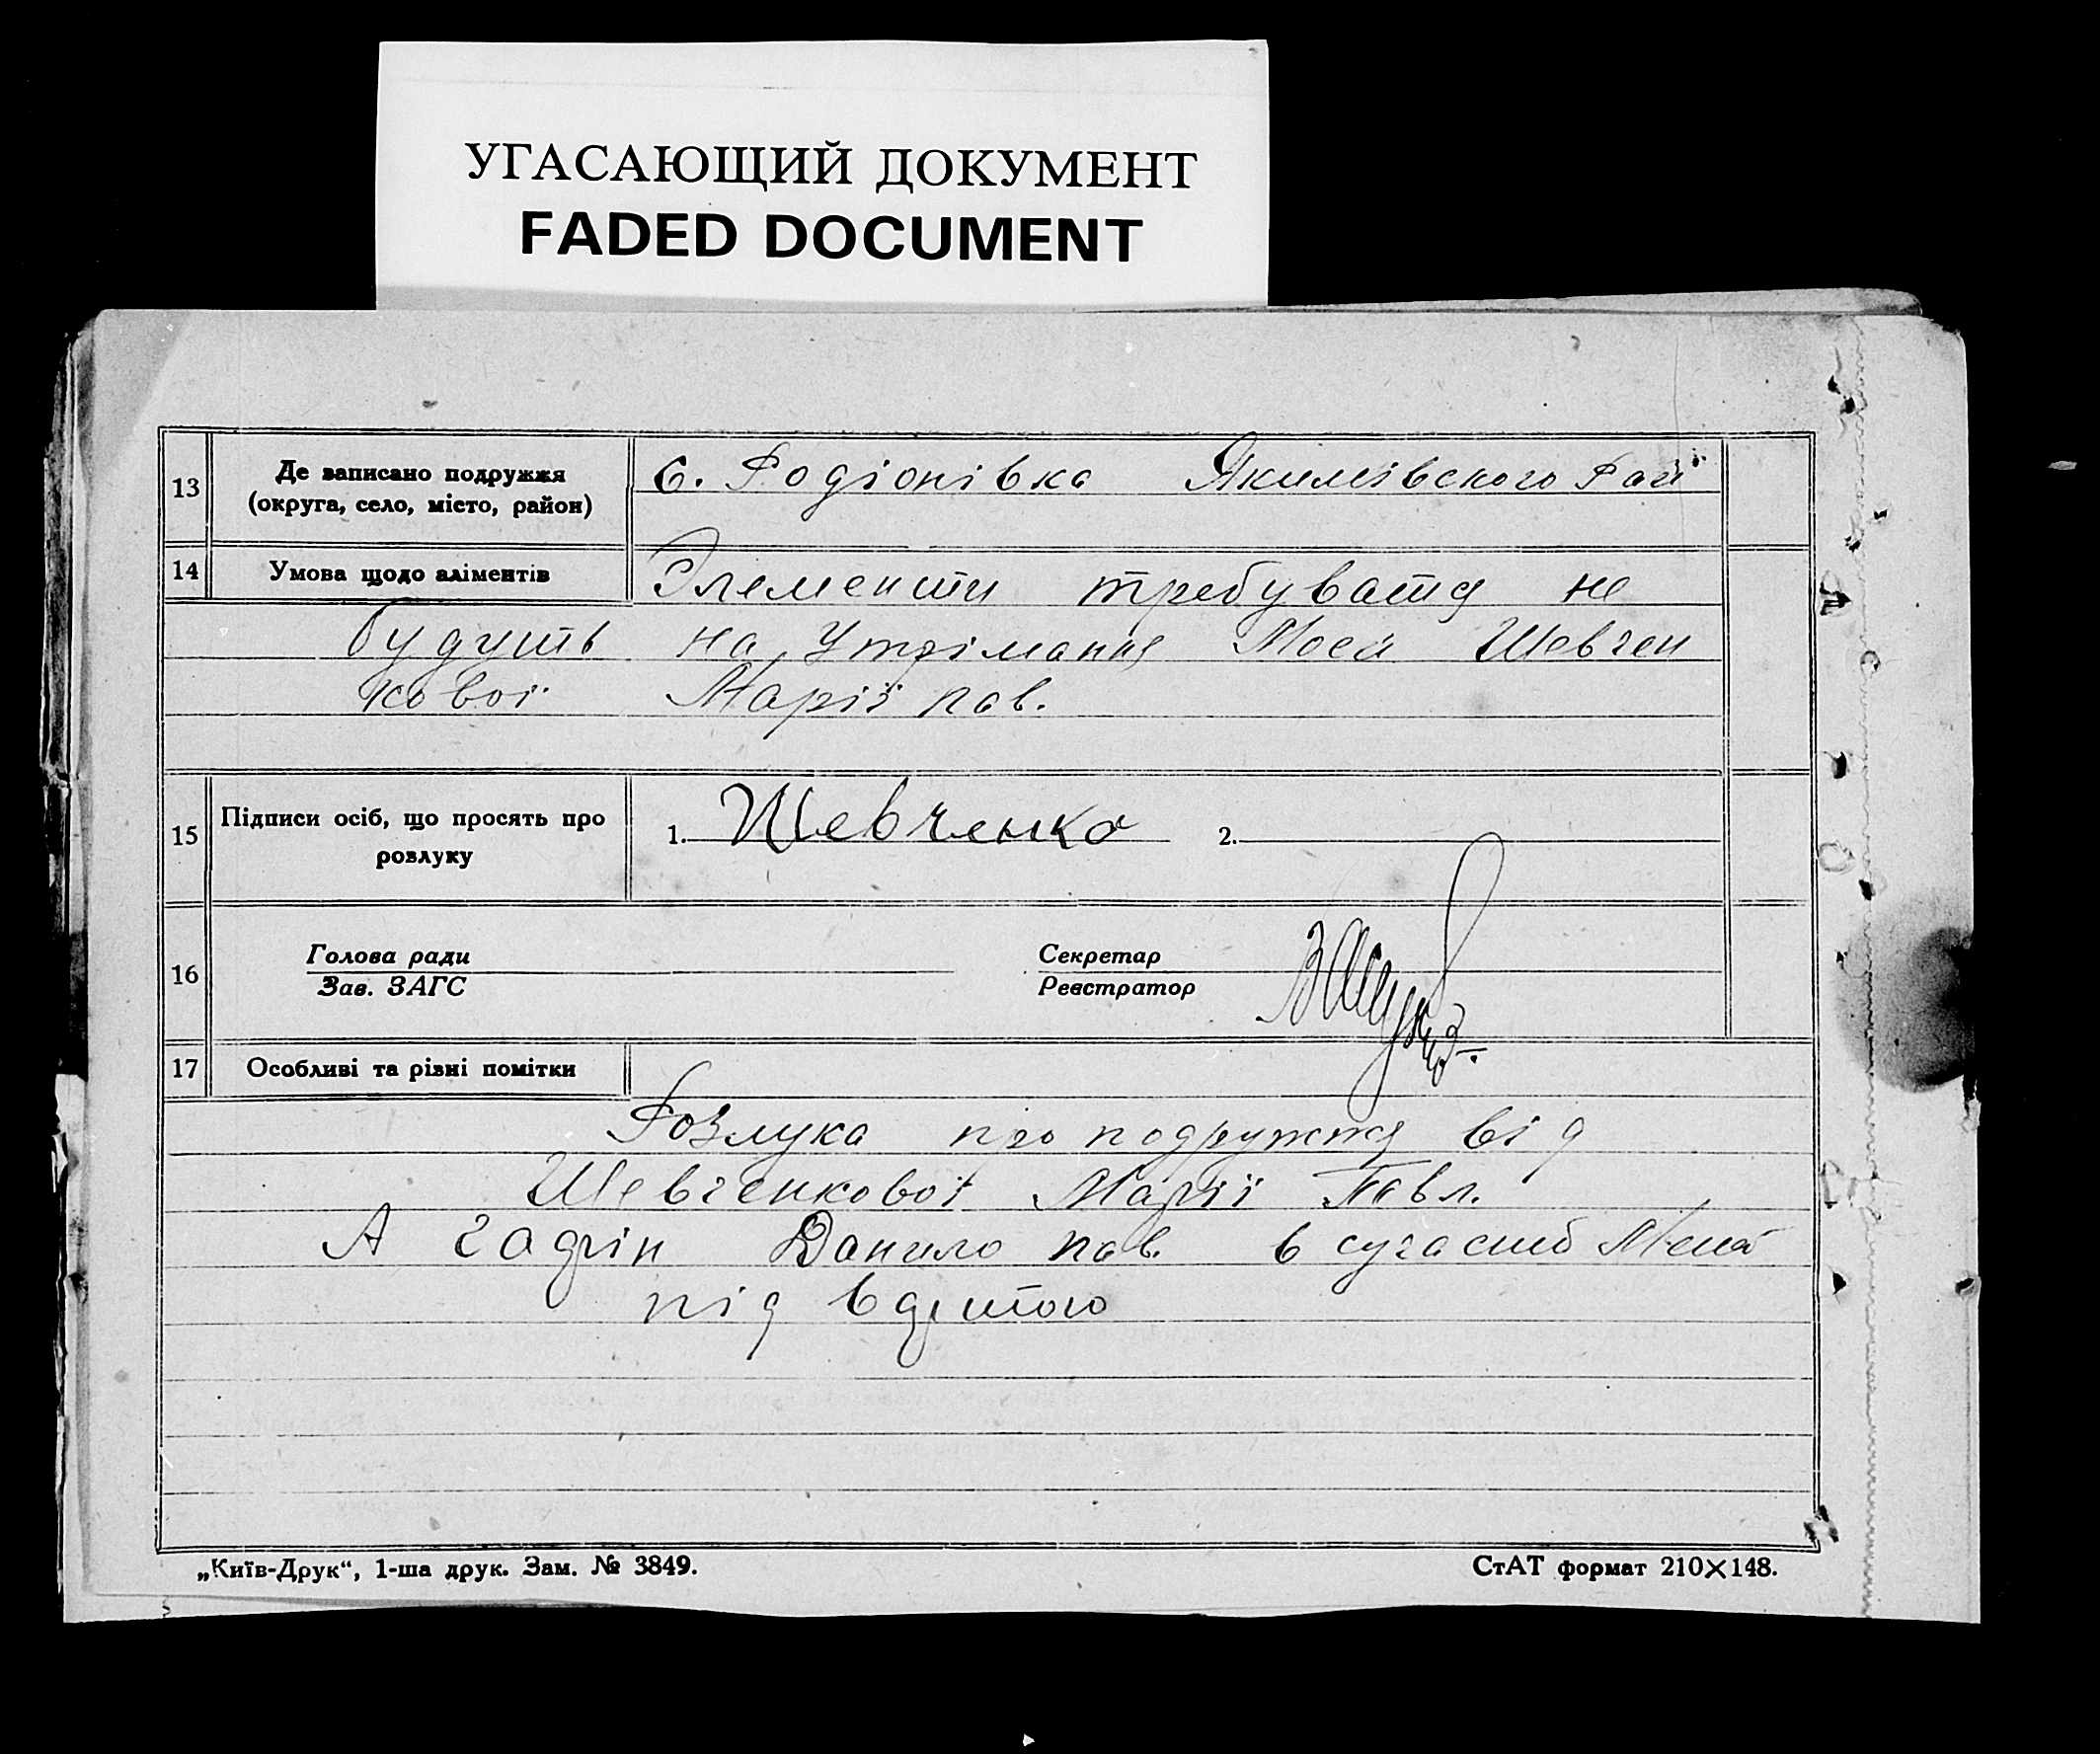 УГАСАЮЩИЙ ДОКУМЕНТ
FADED DOCUMENT
13 Де записано подружжя (округа, село, місто, район) с. Родіонівка Якимівского Рай
14 Умова щодо аліментів Элементи требуватя не
будуть на Утрімання Моеи Шевчен
кової Марії пав.
15 Підписи осіб, що просять про розлуку 1. Шевченко 2.
16 Голова ради
Зав. ЗАГС
Секретар
Реєстратор
17 Особливі та різні помітки
Розлука про подружжя від
Шевченкової Марії Павл.
А Данило пав. в
під
„Київ-Друк“, 1-ша друк. Зам. № 3849. СтАТ формат 210×148.